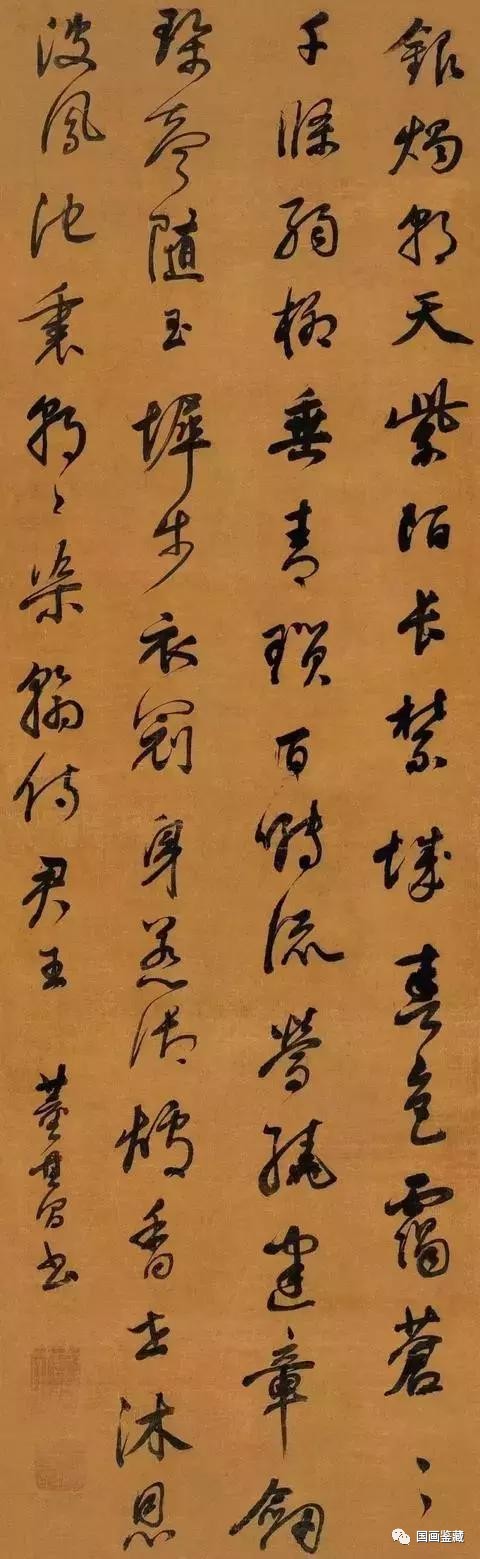 銀燭朝天紫陌長禁城春色靄蒼〻
千條弱柳垂青瑣百囀流鶯繞建章劍
珮聲隨玉墀步衣冠身惹御爐香共沐恩
波鳳池裏朝〻染翰侍君王
董其昌書
国画鉴藏